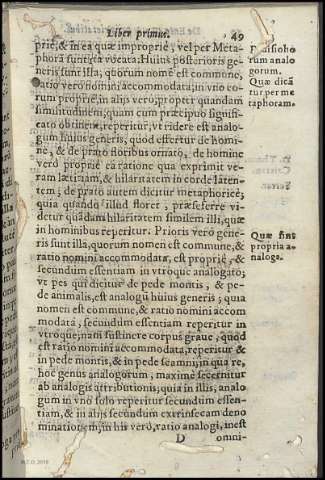 Liber primus. 49
priè, & in ea quæ impropriè, vel per Meta-
phorā sunt ita vocata. Huius posterioris ge-
neris sunt illa, quorum nomē est commune,
ratio verò nomini accommodata, in vno eo-
rum propriè, in alijs verò, propter quandam
similitudinem, quam cum præcipuo signifi-
cato obtinēt, reperitur, vt ridere est analo-
gum huius generis, quod effertur de homi-
ne, & de prato floribus ornato, de homine
verò propriè ea ratione qua exprimit ve-
ram lætitiam, & hilaritatem in corde laten-
tem; de prato autem dicitur metaphoricè;
quia quando illud floret, præseferre vi-
detur quādam hilaritatem similem illi, quæ
in hominibus reperitur. Prioris verò gene-
ris sunt illa, quorum nomen est commune, &
ratio nomini accommodata, est propriè, &
secundum essentiam in vtroque analogato;
vt pes qui dicitur de pede montis, & pe-
de animalis, est analogū huius generis; quia
nomen est commune, & ratio nomini accom
modata, secundum essentiam reperitur in
vtroque, nam sustinere corpus graue, quod
est ratio nomini accommodata, reperitur &
in pede montis, & in pede scamni, in qua re,
hoc genus analogorum, maximè secernitur
ab analogis attributionis, quia in illis, analo
gum in vno solo reperitur secundum essen-
tiam, & in alijs secundum extrinsecam deno
minationem, in his verò, ratio analogi, inest
D omni-
rum analo
gorum.
Quæ dicā
tur per me
taphoram.
Quæ sint
propria a-
naloga.